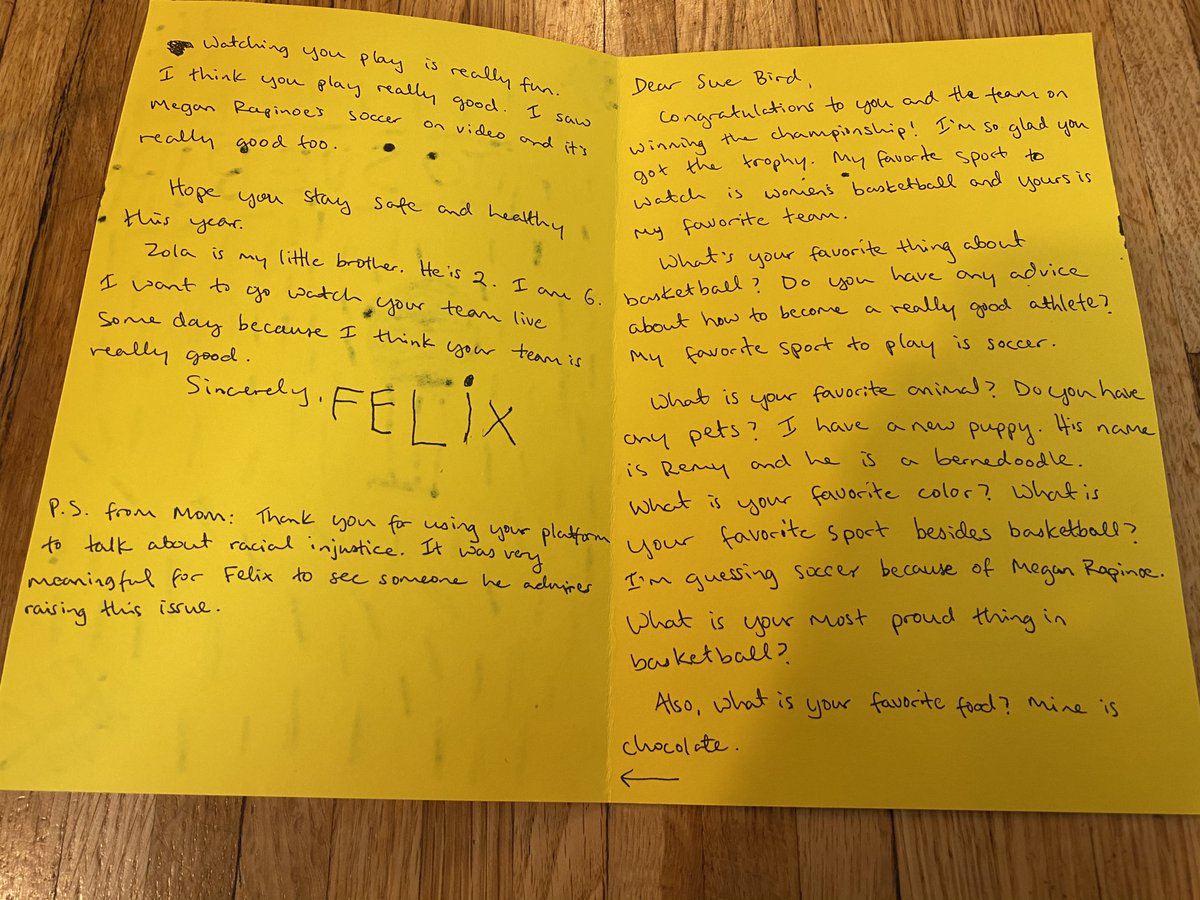 Dear Sue Bird,
Congratulations to you and the team on
winning the championship! I'm so glad you
got the trophy. My favorite sport to
watch is women's basketball and yours is
my favorite team.
What's your favorite thing about
basketball? Do you have any advice
about how to become a really good athlete?
My favorite sport to play is soccer.
What is your favorite animal? Do you have
any pets? I have a new puppy. His name
is Remy and he is a bernedoodle.
What is your favorite color? What is
your favorite sport besides basketball?
I'm guessing soccer because of Megan Rapinoe.
What is your most proud thing in
basketball?
Also, what is your favorite food? Mine is
chocolate.
←
Watching you play is really fun.
I think you play really good. I saw
Megan Rapinoe's soccer on video and it's
really good too.
Hope you stay safe and healthy
this year.
Zola is my little brother. He is 2. I am 6.
I want to go watch your team live
some day because I think your team is
really good.
Sincerely, FELiX
P.S. from Mom: Thank you for using your platform
to talk about racial injustice. It was very
meaningful for Felix to see someone he admires
raising this issue.